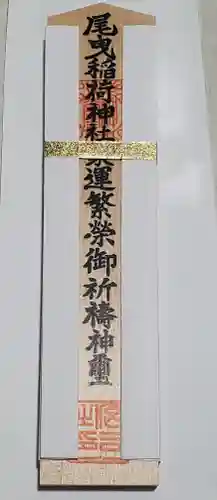 尾曳稲荷神社
運繁榮御祈禱神璽